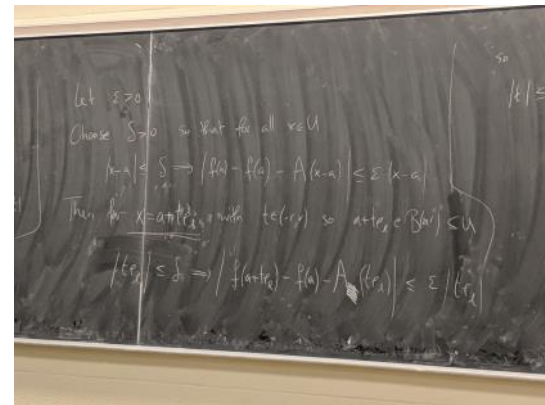 Let ε>0
Choose δ>0 so that for all x∈U
|x-a| ≤ δ ⇒ |f(x) - f(a) - A(x-a)| ≤ ε|x-a|
Then for x=a+te_l, with t∈(-r,r) so a+te_l ∈ B(a,r) ⊆ U
|te_l| ≤ δ ⇒ |f(a+te_l) - f(a) - A(te_l)| ≤ ε|te_l|
so
|t| ≤